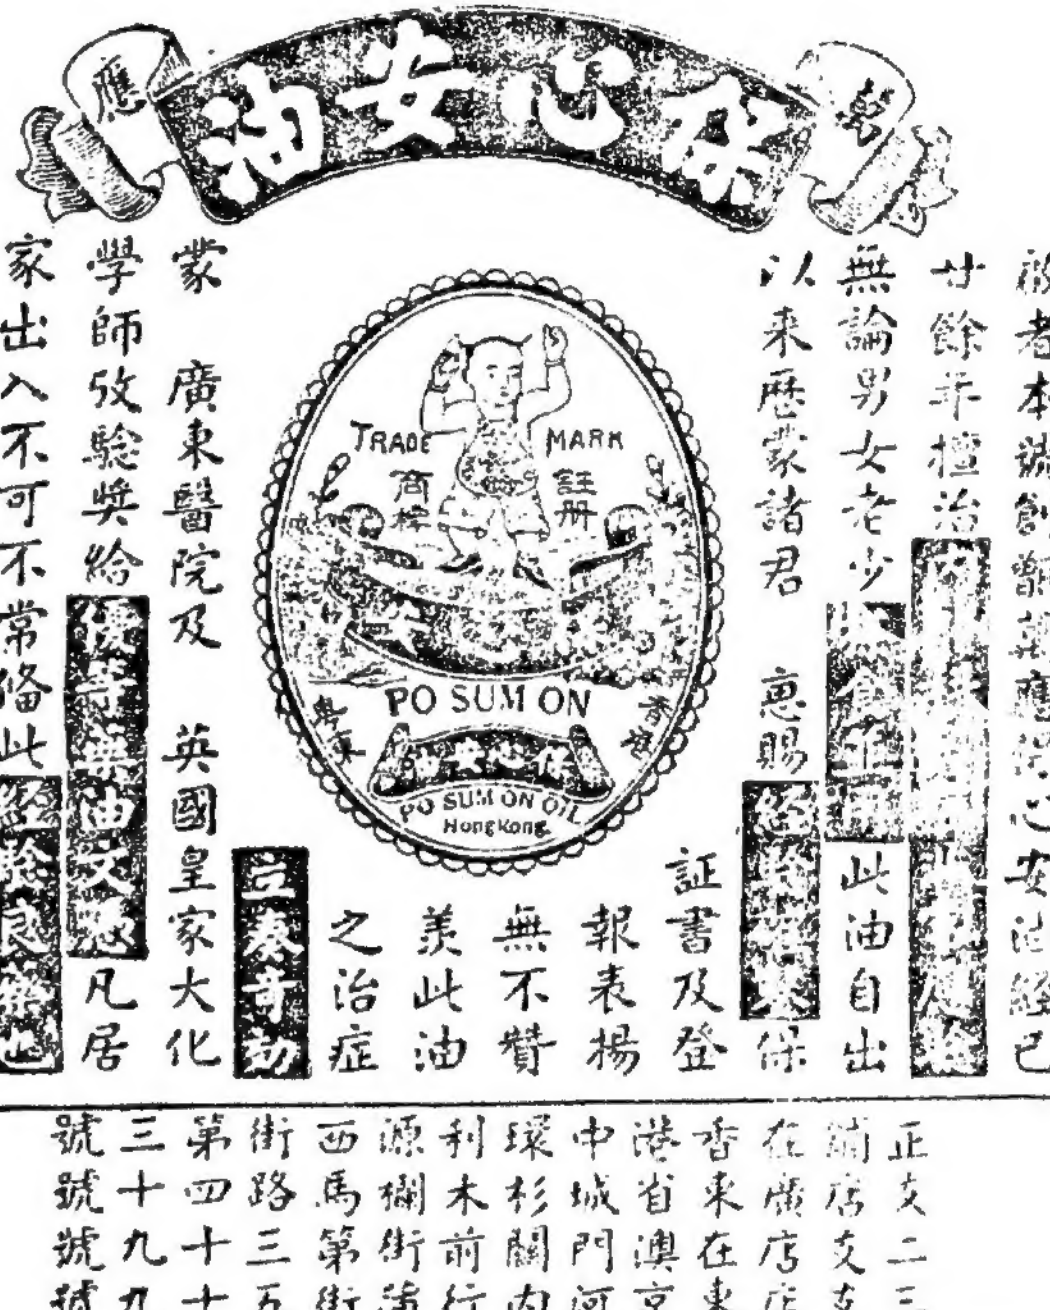 萬應
保心安油
啟者本號創製萬應保心安油經已
廿餘年擅治
無論男女老少此油自出
以来歷蒙諸君 惠賜保
証書及登
報表揚
無不贊
羨此油
之治症
立奏奇効
蒙 廣東醫院及 英國皇家大化
學師攷驗獎給優等藥油文憑凡居
家出入不可不常俻此經驗良藥也
TRADE MARK
註册商標
PO SUM ON
香港
保心安油
PO SUM ON OIL
HongKong
正舖在香港中環利源西街第三號
支店廣東省城杉木欄馬路四十號
二支店在澳門關前街第三十九號
三支店東京河內行街五十九號